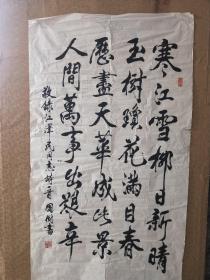 寒江雪柳日新晴
玉樹瓊花滿目春
歷盡天華成此景
人間萬事出艱辛
敬錄江澤民同志詩一首 國衡書